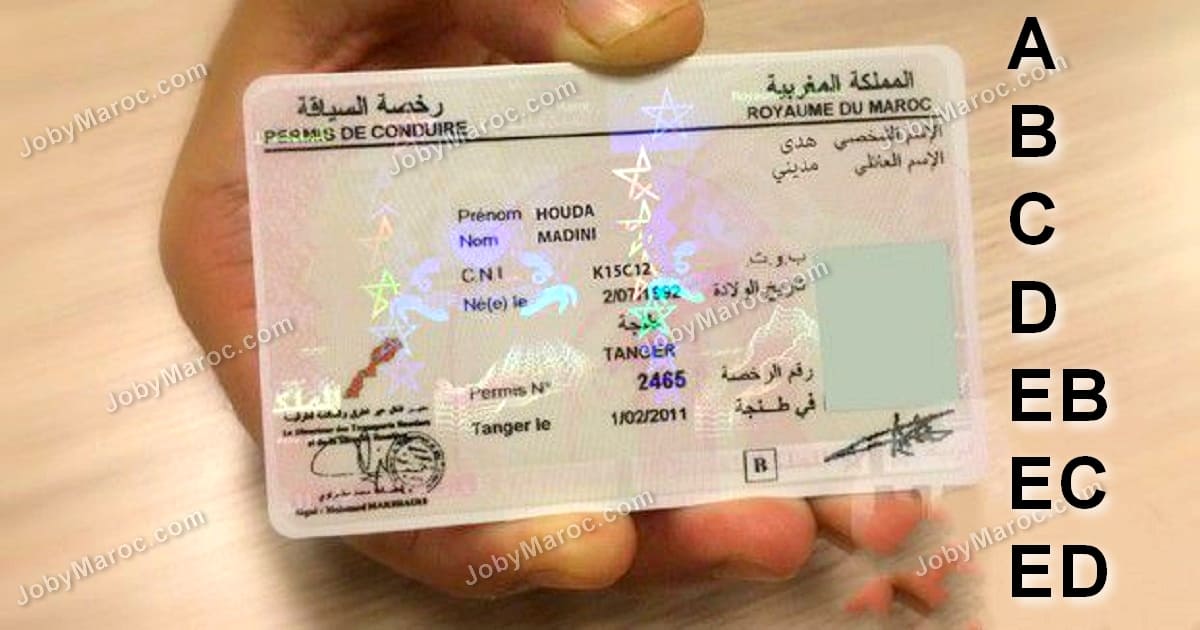 رخصة السياقة
PERMIS DE CONDUIRE
المملكة المغربية
ROYAUME DU MAROC
الإسم الشخصي هدى
الإسم العائلي مديني
Prénom HOUDA
Nom MADINI
C.N.I K15C12
ب.و.ت.
Né(e) le 2/07/1992 تاريخ الولادة
طنجة
TANGER
Permis N° 2465 رقم الرخصة
Tanger le 1/02/2011 في طنجة
Le Directeur des Transports Routiers
B
A
B
C
D
EB
EC
ED
JobyMaroc.com
JobyMaroc.com
JobyMaroc.com
JobyMaroc.com
JobyMaroc.com
JobyMaroc.com
JobyMaroc.com
JobyMaroc.com